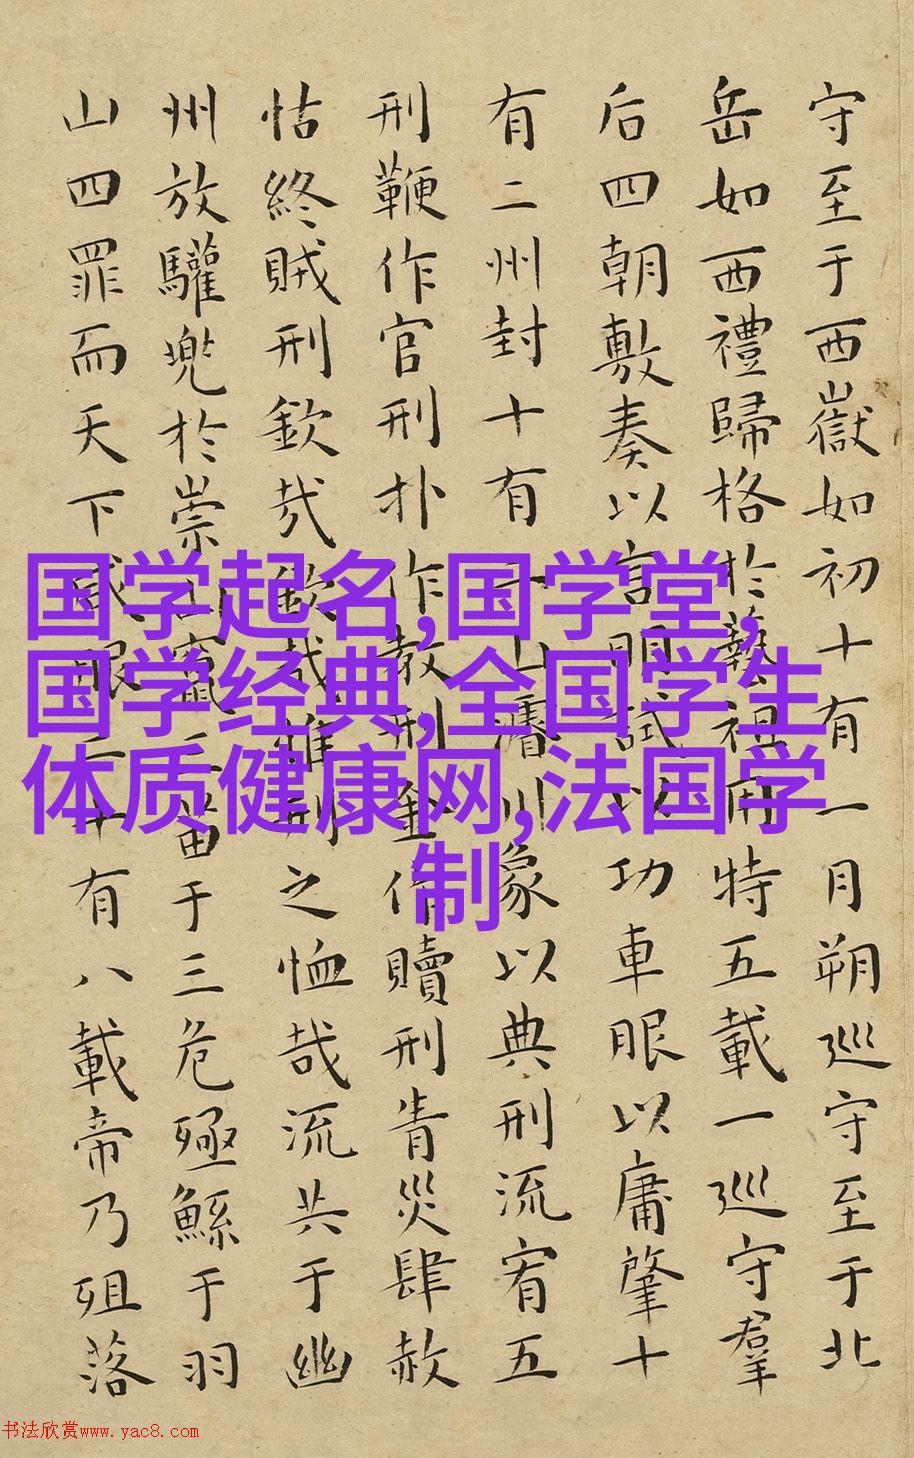 守至于西嶽如初十有一月朔巡守至于北
岳如西禮歸格於藝祖用特五載一巡守羣
后四朝敷奏以言明試以功車服以庸肇十
有二州封十有二山濬川象以典刑流宥五
刑鞭作官刑扑作教刑金作贖刑眚災肆赦
怙終賊刑欽哉欽哉惟刑之恤哉流共于幽
州放驩兜於崇山竄三苗于三危殛鯀于羽
山四罪而天下咸服二十有八載帝乃殂落
国学起名,国学堂,
国学经典,全国学生
体质健康网,法国学
制
书法欣赏www.yac8.com